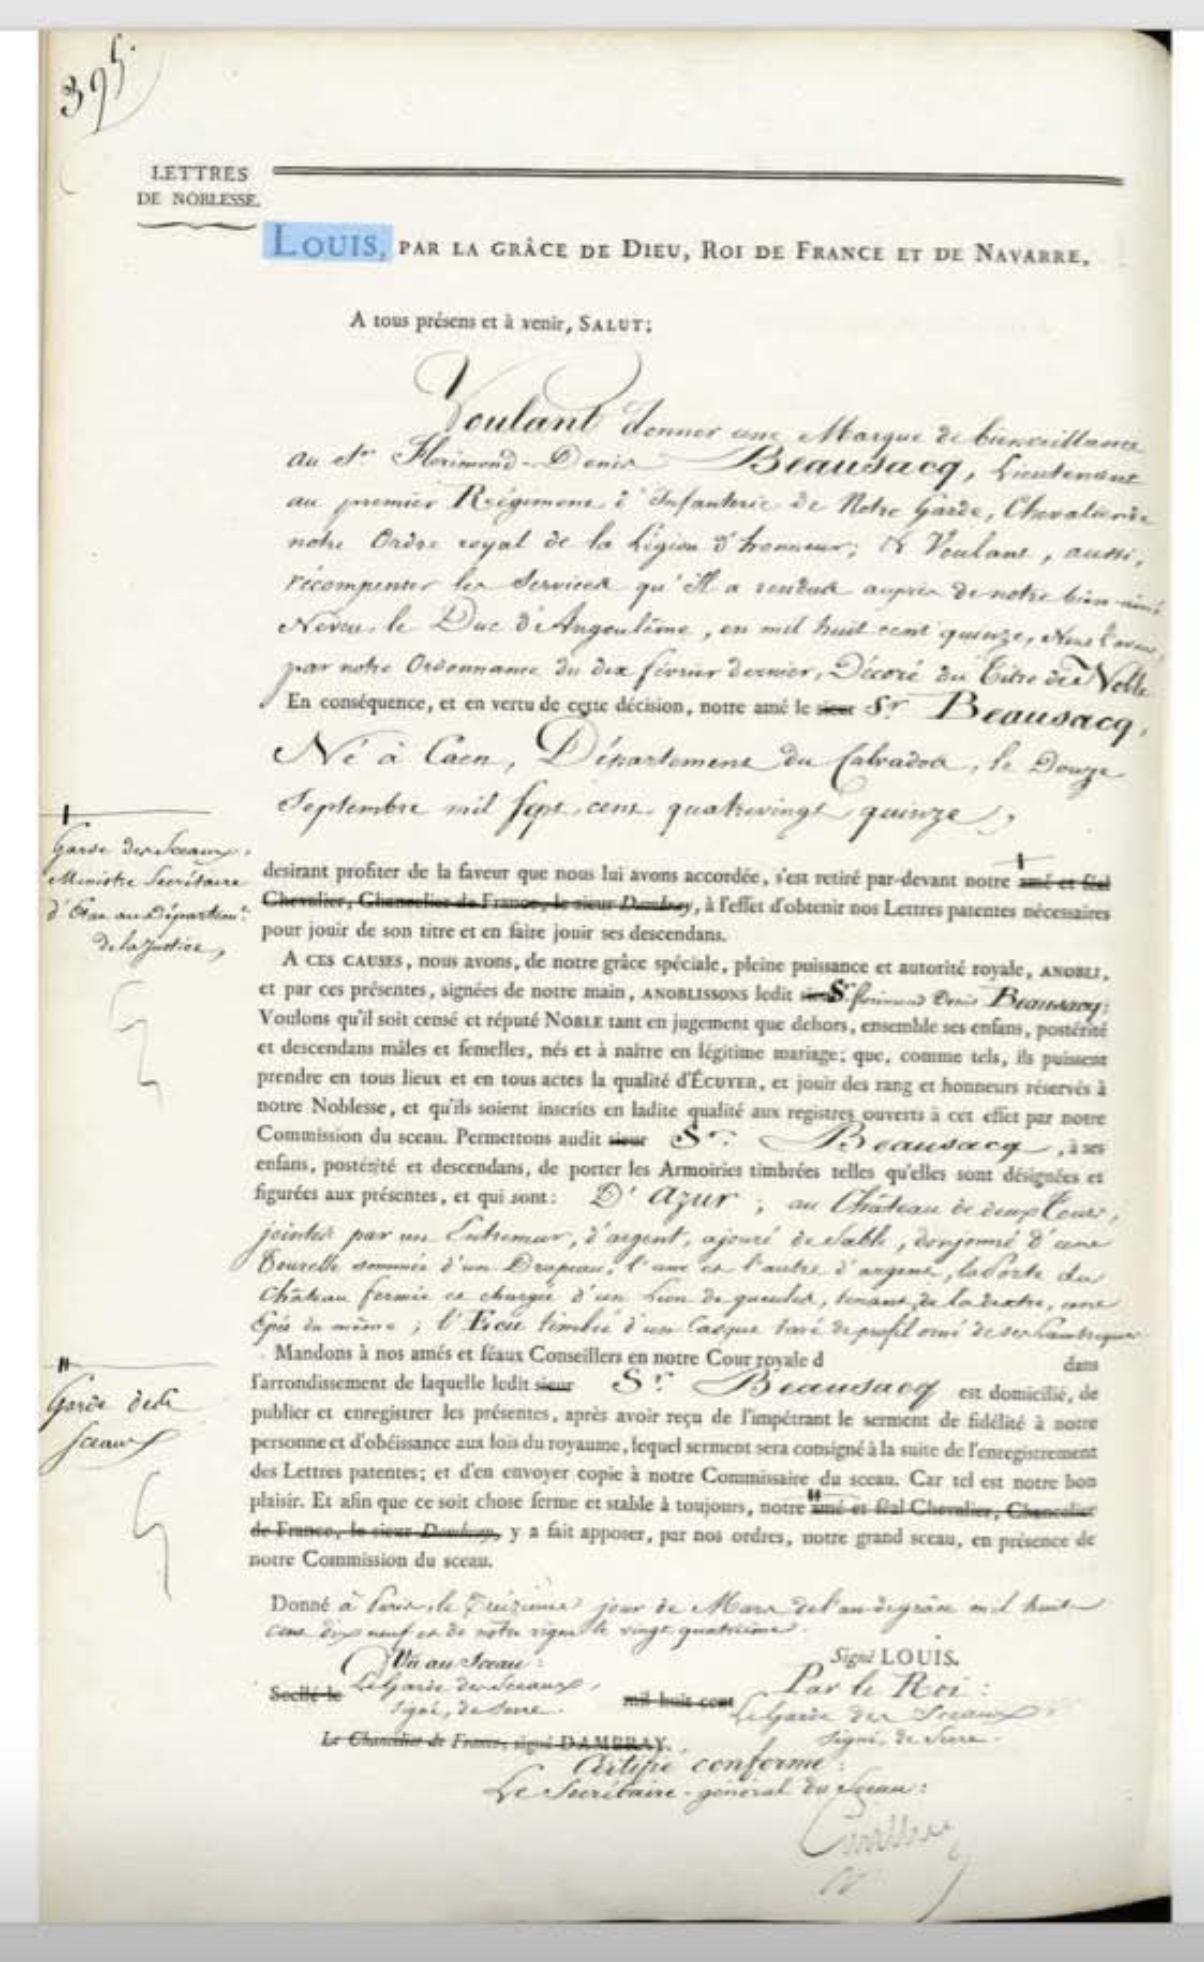 395.
LETTRES
DE NOBLESSE.
LOUIS, PAR LA GRÂCE DE DIEU, ROI DE FRANCE ET DE NAVARRE,
A tous présens et à venir, SALUT;
Voulant donner une Marque de bienveillance
au Sr Florimond-Denis Beausacq, Lieutenant
au premier Régiment d'Infanterie de Notre Garde, Chevalier de
notre Ordre royal de la Légion d'honneur; & Voulant, aussi,
récompenser les Services qu'Il a rendus auprès de notre bien-aimé
Neveu, le Duc d'Angoulême, en mil huit cent quinze, Nous l'avons,
par notre Ordonnance du dix février dernier, Décoré du Titre de Noble
En conséquence, et en vertu de cette décision, notre amé le sieur Sr Beausacq,
Né à Caen, Département du Calvados, le Douze
Septembre mil sept cent quatrevingt quinze,
Garde des Sceaux,
Ministre Secrétaire
d'Etat au Départemt
de la Justice,
desirant profiter de la faveur que nous lui avons accordée, s'est retiré par-devant notre amé et féal
Chevalier, Chancelier de France, le sieur Dambray, à l'effet d'obtenir nos Lettres patentes nécessaires
pour jouir de son titre et en faire jouir ses descendans.
A CES CAUSES, nous avons, de notre grâce spéciale, pleine puissance et autorité royale, ANOBLI,
et par ces présentes, signées de notre main, ANOBLISSONS ledit sieur Sr florimond Denis Beausacq:
Voulons qu'il soit censé et réputé NOBLE tant en jugement que dehors, ensemble ses enfans, postérité
et descendans mâles et femelles, nés et à naître en légitime mariage; que, comme tels, ils puissent
prendre en tous lieux et en tous actes la qualité d'ÉCUYER, et jouir des rang et honneurs réservés à
notre Noblesse, et qu'ils soient inscrits en ladite qualité aux registres ouverts à cet effet par notre
Commission du sceau. Permettons audit sieur Sr. Beausacq, à ses
enfans, postérité et descendans, de porter les Armoiries timbrées telles qu'elles sont désignées et
figurées aux présentes, et qui sont: D'azur; au Château de deux Tours,
jointes par un Entremur, d'argent, ajouré de Sable, donjonné d'une
Tourelle sommée d'un Drapeau, l'une et l'autre d'argent, la Porte du
Château fermée et chargée d'un Lion de gueules, tenant de la dextre, une
Epée du même; l'Ecu timbré d'un Casque taré de profil orné de ses Lambrequins
Mandons à nos amés et féaux Conseillers en notre Cour royale d dans
l'arrondissement de laquelle ledit sieur Sr Beausacq est domicilié, de
Garde des
Sceaux
publier et enregistrer les présentes, après avoir reçu de l'impétrant le serment de fidélité à notre
personne et d'obéissance aux lois du royaume, lequel serment sera consigné à la suite de l'enregistrement
des Lettres patentes; et d'en envoyer copie à notre Commissaire du sceau. Car tel est notre bon
plaisir. Et afin que ce soit chose ferme et stable à toujours, notre amé et féal Chevalier, Chancelier
de France, le sieur Dambray, y a fait apposer, par nos ordres, notre grand sceau, en présence de
notre Commission du sceau.
Donné à Paris, le Treizième jour de Mars de l'an de grâce mil huit
cent dix neuf et de notre règne le vingt quatrième.
Vu au Sceau: Signé LOUIS.
Scellé le Le Garde des Sceaux, mil huit cent Par le Roi:
signé, de Serre. Le Garde des Sceaux
Le Chancelier de France, signé DAMBRAY. signé, de Serre.
Certifié conforme:
Le Secrétaire-général du Sceau: